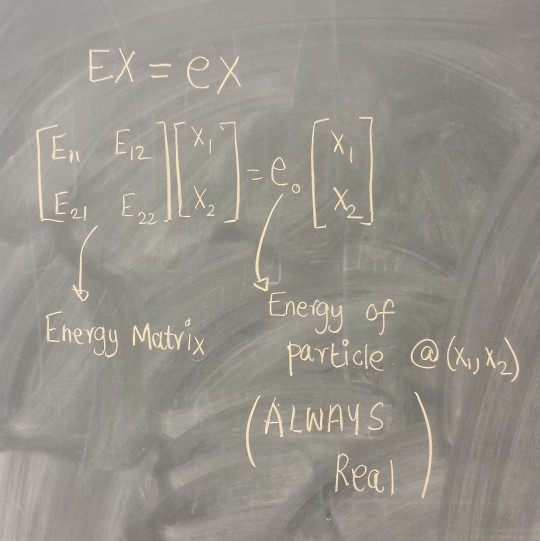 EX = eX
[E₁₁ E₁₂ E₂₁ E₂₂] [X₁ X₂] = e. [X₁ X₂]
Energy Matrix
Energy of
particle @ (X₁, X₂)
(ALWAYS
Real)